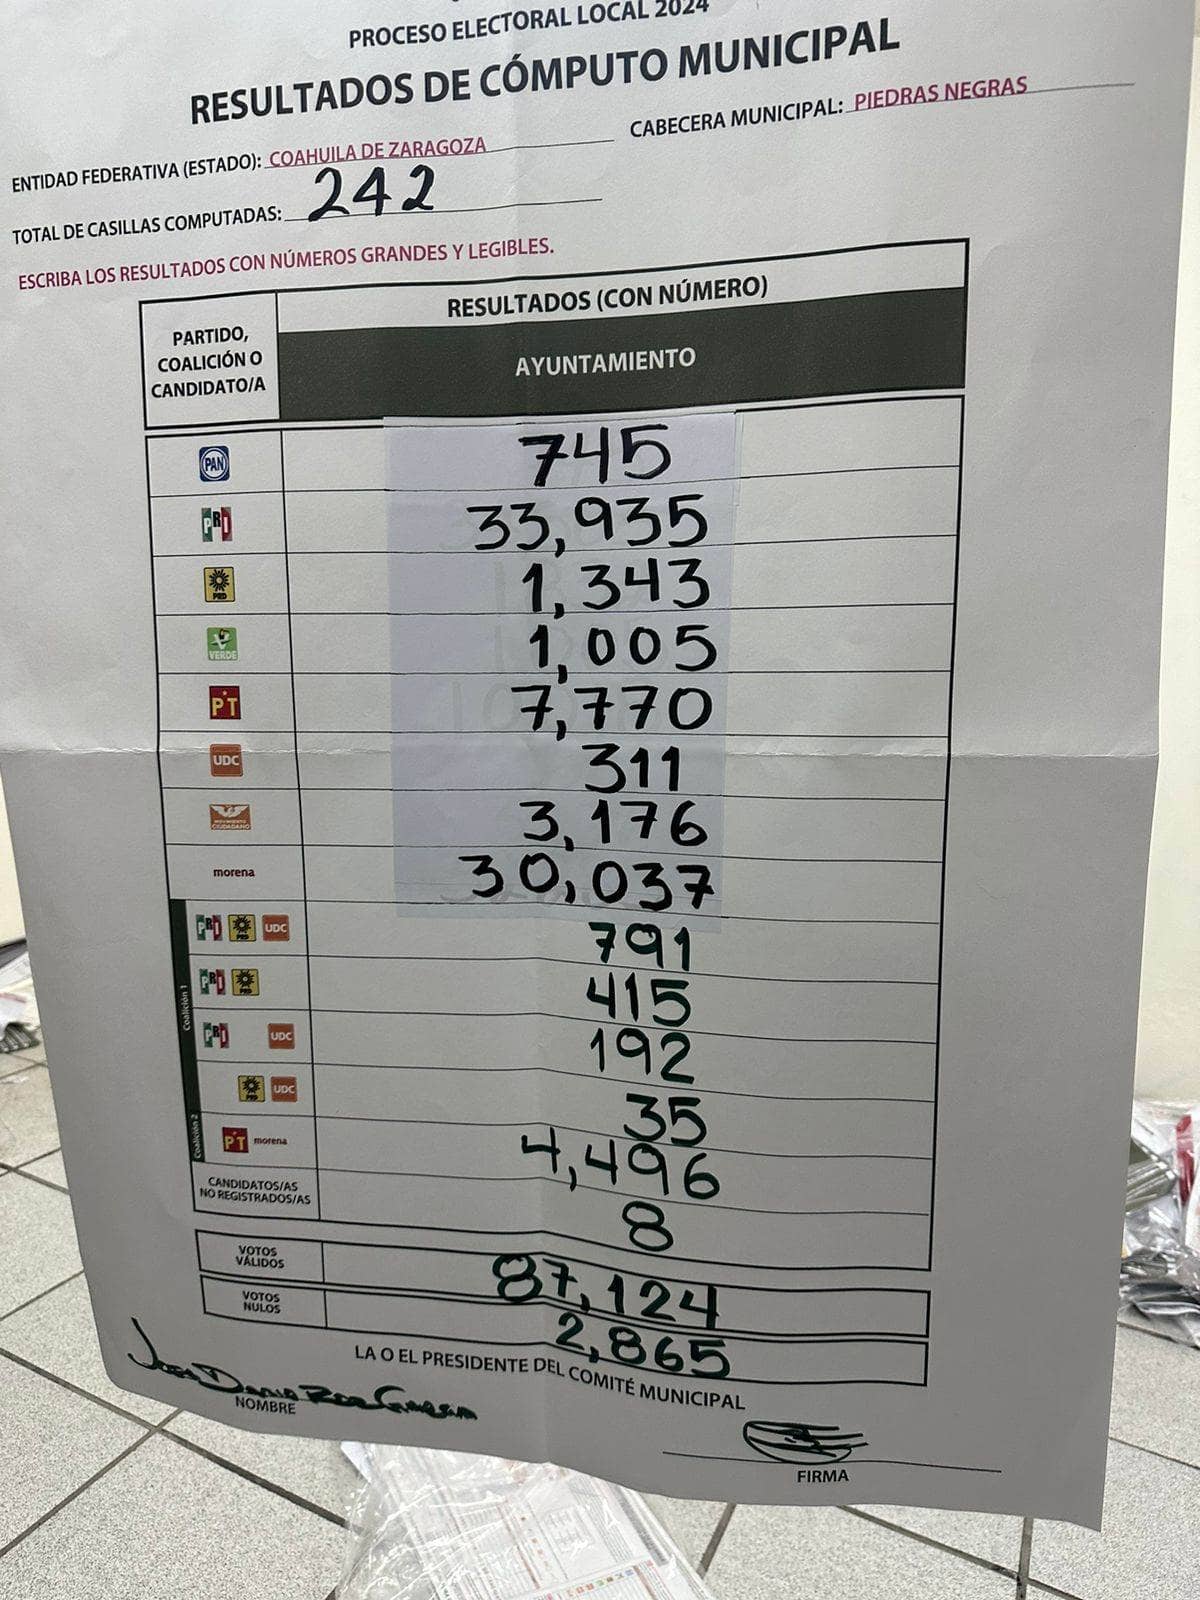 PROCESO ELECTORAL LOCAL 2024
RESULTADOS DE CÓMPUTO MUNICIPAL
ENTIDAD FEDERATIVA (ESTADO): COAHUILA DE ZARAGOZA
CABECERA MUNICIPAL: PIEDRAS NEGRAS
TOTAL DE CASILLAS COMPUTADAS: 242
ESCRIBA LOS RESULTADOS CON NÚMEROS GRANDES Y LEGIBLES.
PARTIDO,
COALICIÓN O
CANDIDATO/A
RESULTADOS (CON NÚMERO)
AYUNTAMIENTO
PAN 745
PRI 33,935
PRD 1,343
VERDE 1,005
PT 7,770
UDC 311
MOVIMIENTO
CIUDADANO 3,176
morena 30,037
Coalición 1
PRI PRD UDC 791
PRI PRD 415
PRI UDC 192
PRD UDC 35
Coalición 2
PT morena 4,496
CANDIDATOS/AS
NO REGISTRADOS/AS 8
VOTOS
VÁLIDOS 87,124
VOTOS
NULOS 2,865
LA O EL PRESIDENTE DEL COMITÉ MUNICIPAL
NOMBRE
FIRMA